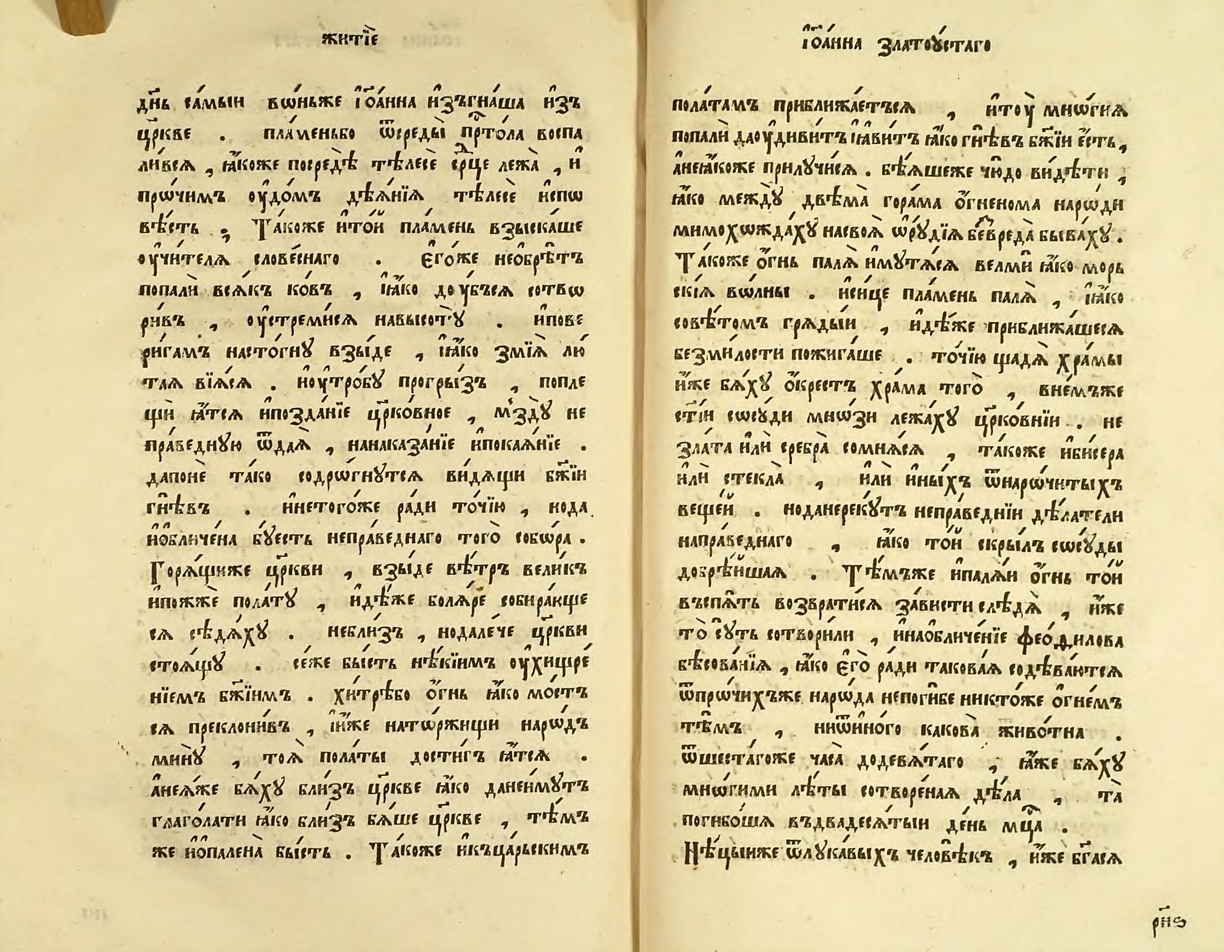 житїе
дн҃ь са́мыи во́ньже і҆ѡа́нна и҆з̾гна́ша и҆зъ
цр҃кве . пла́меньбо ѿсреды̀ прⷭ҇то́ла воспа
ли́всѧ , ꙗ҆́коже посредѣ̀ тѣ́лесе срⷣце лежа̀ , и҆
прѡ́чимъ ᲂу҆дѡ́мъ дѣѧ́нїѧ тѣ́лесе и҆спѡ
вѣ́сть . Та́коже и҆то́й пла́мень взыска́ше
ᲂу҆чи́телѧ слове́снаго . є҆го́же необрѣ́тъ
попалѝ всѧ́къ ко́въ , і҆ꙗ҆́ко до ѹбъсѧ сотвѡ
ри́въ , ᲂу҆стреми́сѧ навысотꙋ̀ . и҆пове
ри́гамъ насто́гнꙋ взы́де , і҆ꙗ҆́ко змїѧ̀ лю́
таѧ вїѧ́сѧ . и҆ᲂу҆тро́бꙋ прогры́зъ , попле
щѝ ꙗ҆́тсѧ и҆позда́нїе цр҃ко́вное , м̾здꙋ̀ не
пра́веднꙋю ѿдаѧ̀ , нанаказа́нїе и҆покаѧ́нїе .
дапонѐ та́ко содрѡ́гнꙋтсѧ ви́дѧщи бж҃їи
гнѣ́въ . и҆нетогѡ́же ра́ди то́чїю , нода
и҆ѡ҆бличена̀ бꙋ́есть непра́веднаго того̀ собѡ́ра .
Горѧ́щиже цр҃кви , взы́де вѣ́тръ вели́къ
и҆пожжѐ пола́тꙋ , и҆дѣ́же болѧ́ре собира́юще
сѧ сѣдѧ́хꙋ . небли́зъ , нодале́че цр҃кви
стоѧ́щꙋ . се́же бы́сть нѣ́кїимъ ᲂу҆хищре́
нїемъ бж҃їимъ . хи́трѣбо ѻ҆́гнь ꙗ҆́ко мо́стъ
сѧ преклони́въ , і҆и҆́же натѡ́ржищи нарѡ́дъ
минꙋ̀ , тоѧ̀ пола́ты дости́гъ ꙗ҆́тсѧ .
А҆неѧ́же бѧ́хꙋ бли́зъ цр҃кве ꙗ҆́ко данеи҆́мꙋтъ
глаго́лати ꙗ҆́ко бли́зъ бѧ́ше цр҃кве , тѣ́мъ
же и҆ѡ҆палена̀ бы́сть . Та́коже и҆къца́рьскимъ
і҆ѡа́нна златоꙋ́стаго
пола́тамъ приближа́етъсѧ , и҆тоу̀ мнѡ́гиѧ
попалѝ даоу҆диви́тъ і҆ꙗ҆ви́тъ ꙗ҆́ко гнѣ́въ бж҃їи є҆́сть ,
а҆неꙗ҆́коже прилꙋчи́сѧ . бѣѧ́шеже чю́до ви́дѣти ,
ꙗ҆́ко междꙋ̀ двѣ́ма гора́ма ѻ҆́гненома нарѡ́ди
мимохѡжда́хꙋ насвоѧ̀ ѡ҆рꙋ́дїѧ беⷥ вреда̀ быва́хꙋ .
Та́коже ѻ҆́гнь палѧ̀ и҆мꙋтѧ́сѧ ве́лми ꙗ҆́ко морь
скі́ѧ вѡ́лны . и҆си́це пла́мень палѧ̀ , і҆ꙗ҆́ко
совѣ́томъ грѧды́и , и҆дѣ́же приближа́шесѧ
безми́лости пожига́ше . то́чїю щадѧ̀ хра́мы
и҆́же бѧ́хꙋ ѻ҆́крестъ хра́ма того̀ , вне́мъже
ст҃і́и сѡсꙋ́ди мнѡ́зи лежа́хꙋ цр҃ко́внїи . не
зла́та и҆лѝ сребра̀ сомнѧ́сѧ , та́коже и҆би́сера
и҆лѝ стекла̀ , и҆лѝ и҆ны́хъ ѿнарѡ́читыхъ
веще́й . ноданереку́тъ непра́веднїи дѣ́латели
напра́веднаго , ꙗ҆́ко то́й скры́лъ сѡсꙋ́ды
добрѣ́йшаѧ . Тѣ́мъже и҆палѧ́и ѻ҆́гнь то́й
въспѧ́ть возврати́сѧ за́висти слѣдѧ̀ , и҆́же
то̀ сꙋ́ть сотвори́ли , и҆наѡ҆бличе́нїе феѻ́филова
бѣсова́нїѧ , ꙗ҆́ко є҆гѡ̀ ра́ди такова́ѧ содѣва́ютсѧ
ѿпрѡ́чихъже нарѡ́да непоги́бе никто́же ѻ҆гне́мъ
тѣ́мъ , ниѿи́ного какова̀ живо́тна .
ѿшеста́гоже часа̀ додевѧ́таго , ꙗ҆́же бѧ́хꙋ
мнѡ́гими лѣ́ты сотворе́наѧ дѣ́ла , та
погибо́шѧ въдвадесѧ́тыи де́нь мцⷭ҇а .
Нѣ́цыиже ѿлꙋка́выхъ человѣ́къ , и҆́же бг҃асѧ
рн҃ѕ